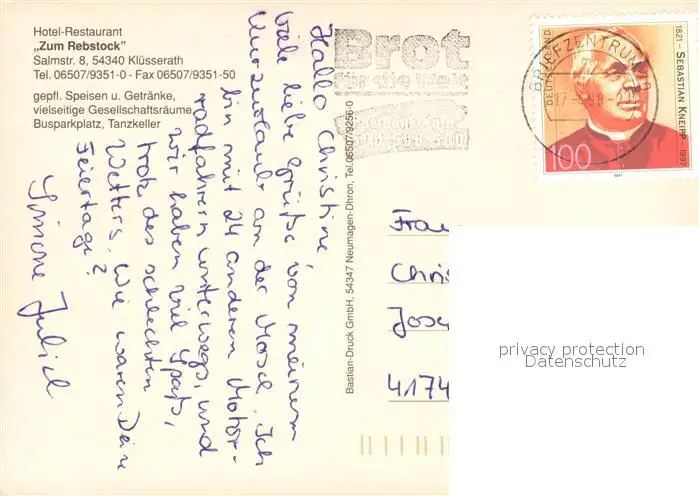 Hotel-Restaurant
„Zum Rebstock"
Salmstr. 8, 54340 Klüsserath
Tel. 06507/9351-0 - Fax 06507/9351-50
gepfl. Speisen u. Getränke,
vielseitige Gesellschaftsräume
Busparkplatz, Tanzkeller
Hallo Christine
Viele liebe Grüße von meinem
Kurzurlaub an der Mosel. Ich
bin mit 24 anderen Motor-
radfahrern unterwegs, und
wir haben viel Spaß,
trotz des schlechten
Wetters. Wie waren Deine
Feiertage?
Simone Julich
Bastian-Druck GmbH, 54347 Neumagen-Dhron, Tel. 06507/9256-0
Brot
für die Welt
BRIEFZENTRUM
DEUTSCHE BUNDESPOST
1821 - SEBASTIAN KNEIPP - 1897
100
1997
Frau
Chris
Jose
4174
privacy protection
Datenschutz